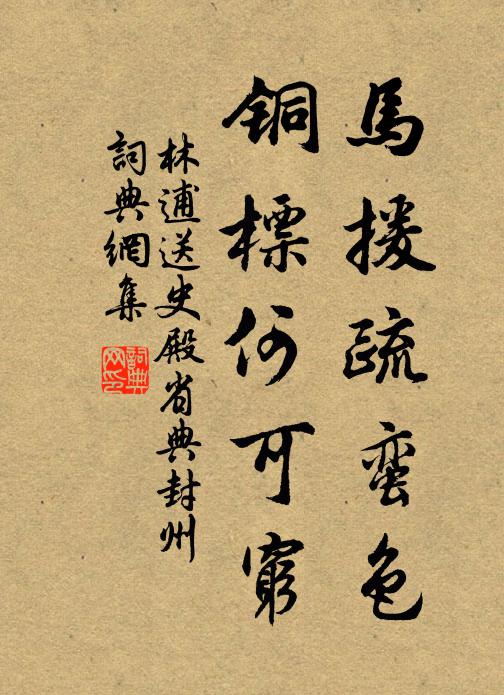 馬援疏蛮色
銅標何可窮
林逋送史殿省典封州
詞典網集
詞典
网印